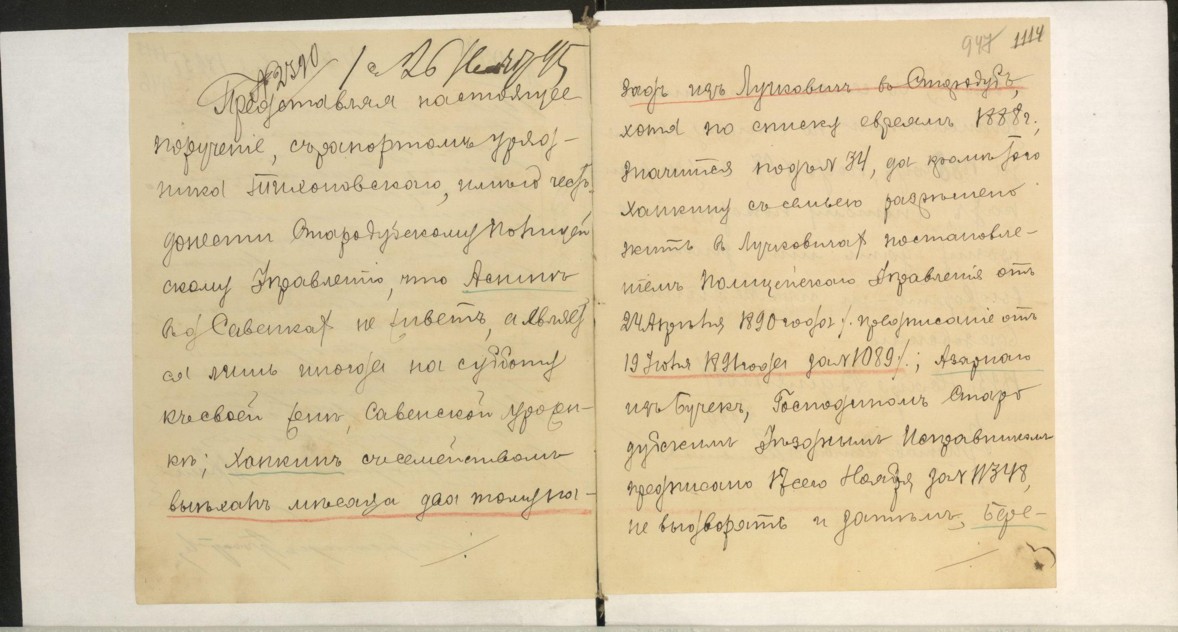 № 2390
Представляя настоящее
порученіе, съ рапортомъ уряд-
ника Тихоновскаго, имѣю честь
донести Стародубскому Полицей
скому Управленію, что Аснинъ
въ д Савенках не живетъ, а являет
ся лишь иногда на субботу
къ своей женѣ, Савенской урожен-
кѣ; Хапкинъ съ семействомъ
выѣхалъ мѣсяца два тому на-
947 1114
задъ изъ Лучковичъ въ Стародубъ,
хотя по списку евреямъ 1888 г.,
значится подъ № 34, да кромѣ того
Хапкину съ семьею разрѣшено
жить в Лучковичах постановле-
ніемъ Полицейскаго Управленія отъ
24 Апрѣля 1890 года /. предписаніе отъ
19 Іюля 1891 года за № 1089 /.; Азарнаго
изъ Бучекъ, Господиномъ Старо
дубскимъ Уѣзднымъ Исправникомъ
предписано 17 сего Ноября за № 11348,
не выдворять и затѣмъ, Бере-